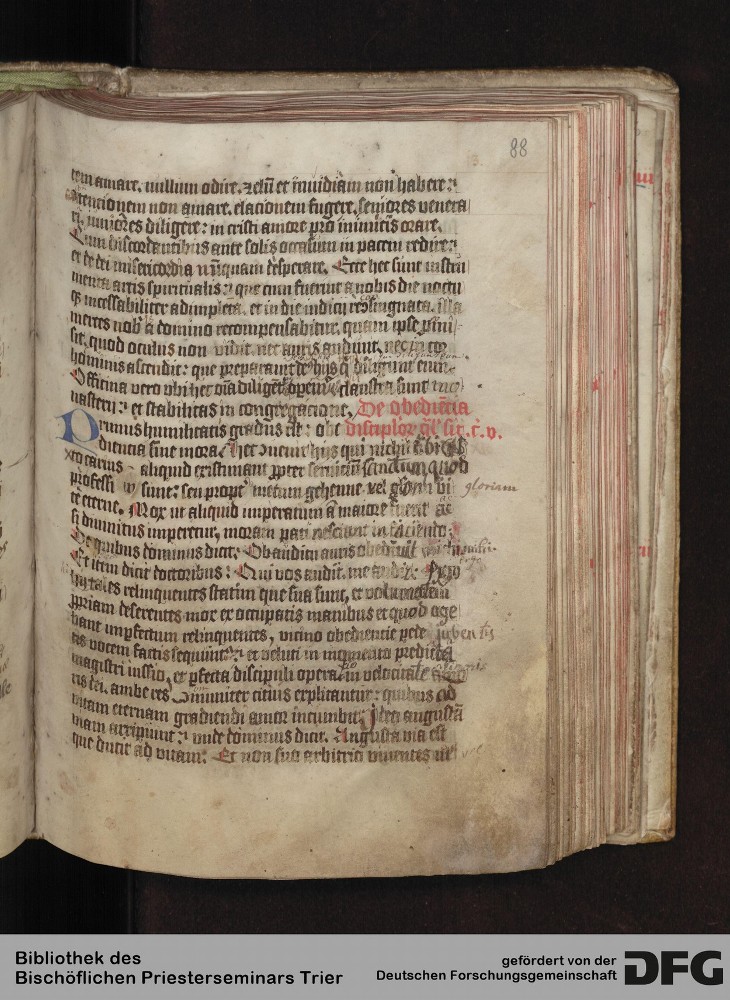 88
tem amare. nullum odire. zelū et inuidiam non habere:
contencionem non amare. elacionem fugere. seniores venera
ri. iuniores diligere: in cristi amore pro inimicis orare.
Cum discordantibus ante solis occasum in pacem redire:
et de dei misericordia nūquam desperare. Ecce hec sunt instru
menta artis spiritualis: que cum fuerint a nobis die noctu
qȝ incessabiliter adimpleta. et in die iudicij resingnata. illa
merces nob a domino recompensabitur. quam ipse pmi
sit. quod oculus non vidit. nec auris audiuit. nec in cor
hominis ascendit: que preparauit de hijs q diligunt eum.
Officina vero vbi hec oīa diligent opemꝰ claustra sunt mo
nasterij: et stabilitas in congregacione. De obediētia
Primus humilitatis gradus est: obe discipulor
dientia sine mora. hec uenit hijs qui nichil
aliquid existimant ꝓpter seruiciū sanctum quod
professi sunt: seu propt metum gehenne vel gloriam vi gloriam
te eterne. Mox ut aliquid imperatum a maiore fuerit ac
si diuinitus imperetur, moram pati nesciant in faciendo:
De quibus dominus dicit. Obauditu auris obediuit michi
Et item dicit doctoribus: Qui vos audit. me audit. Ergo
hij tales relinquentes statim que sua sunt, et voluntatem
ꝓpriam deserentes mox ex occupatis manibus et quod age
bant imperfectum relinquentes, vicino obediencie pede iubentis
tis vocem factis sequuntᵘ: et veluti in momento predicta
magistri iussio, et pfecta discipuli opera in velocitate
ris dei. ambe res communiter citius explicantur: quibus ad
vitam eternam gradiendi amor incumbit. Ideo angustā
viam arripiunt: unde dominus dicit. Angusta via est
que ducit ad vitam. Et non suo arbitrio viuentes ut
Bibliothek des
Bischöflichen Priesterseminars Trier
gefördert von der
Deutschen Forschungsgemeinschaft
DFG